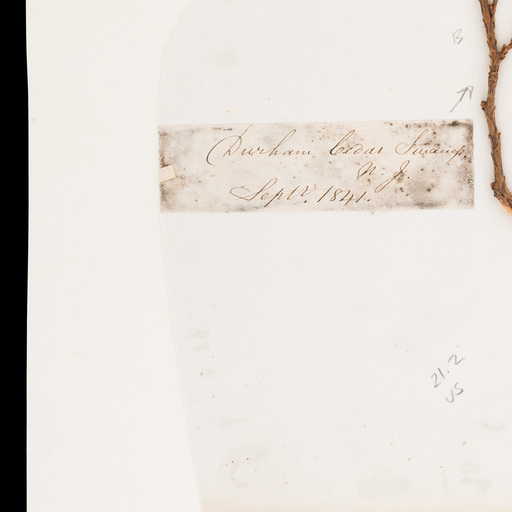 B
Durham Cedar Swamp,
N. J.
Septr. 1841.
21.2
JS